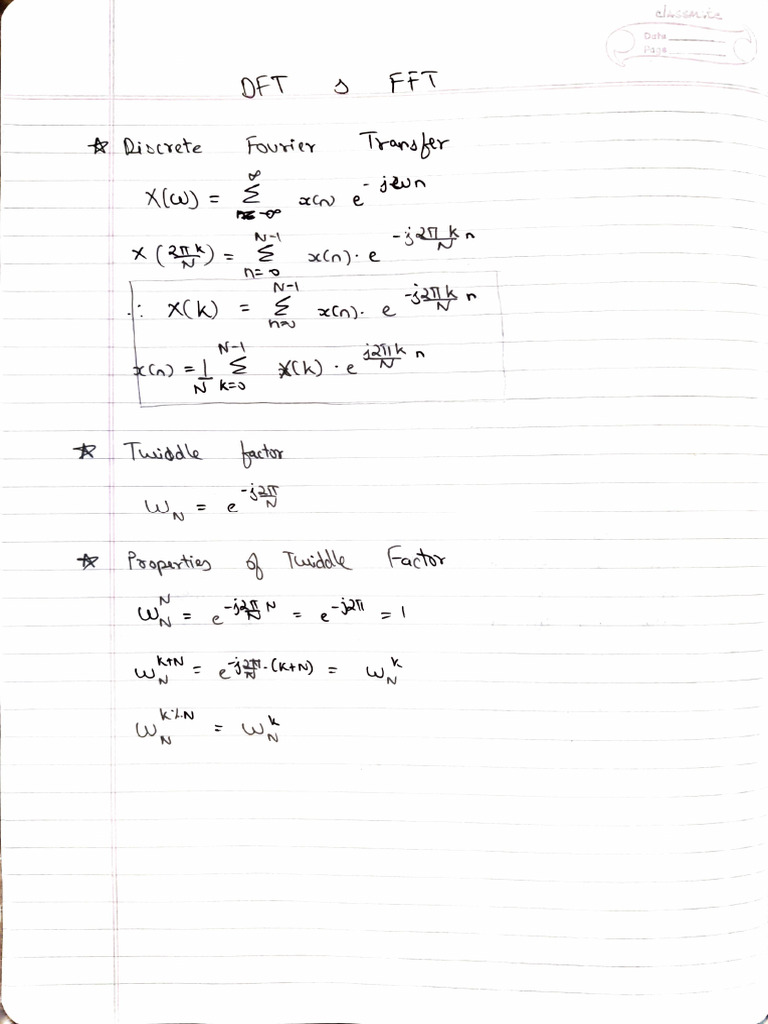 classmate
Date
Page
DFT & FFT
☆ Discrete Fourier Transfer
X(ω) = Σ_{n=-∞}^{∞} x(n) e^{-jωn}
X(2πk/N) = Σ_{n=0}^{N-1} x(n)· e^{-j2πk/N n}
∴ X(k) = Σ_{n=0}^{N-1} x(n)· e^{-j2πk/N n}
x(n) = 1/N Σ_{k=0}^{N-1} X(k) · e^{j2πk/N n}
☆ Twiddle factor
ω_N = e^{-j2π/N}
☆ Properties of Twiddle Factor
ω_N^N = e^{-j2π/N N} = e^{-j2π} = 1
ω_N^{k+N} = e^{-j2π/N·(k+N)} = ω_N^k
ω_N^{k%N} = ω_N^k